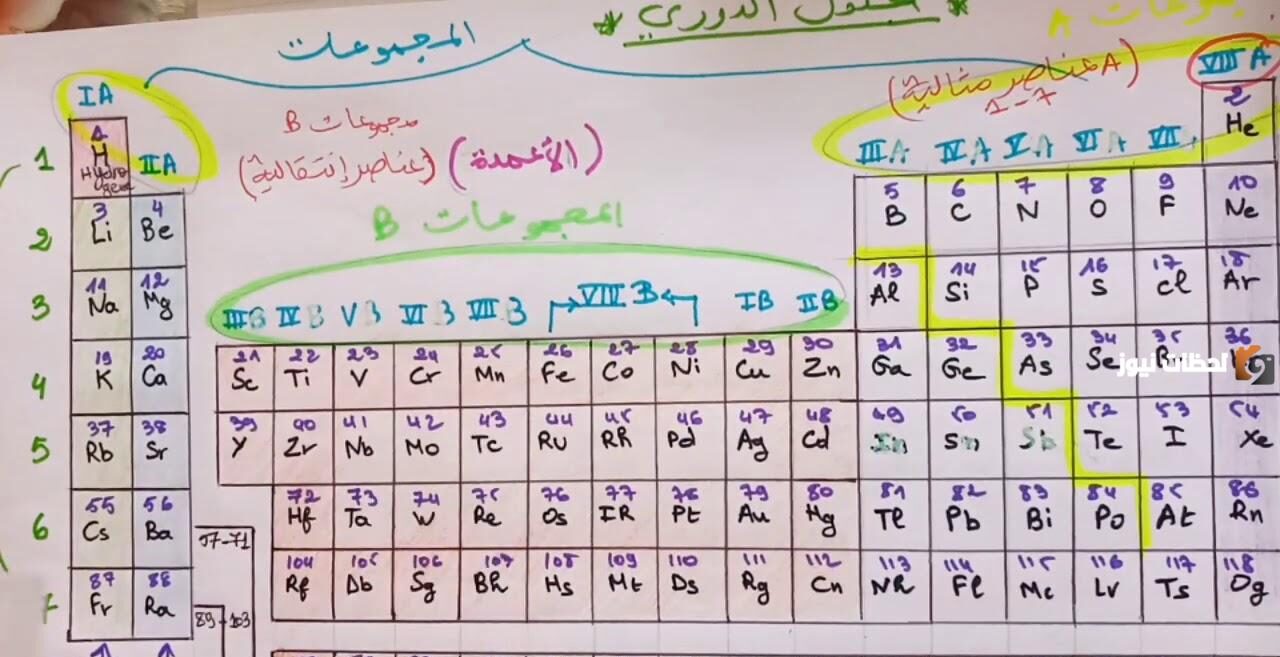 * الجدول الدوري *
مجموعات A
المجموعات
(عناصر مثالية A
1-7
VIII A
IA
IIA
مجموعات B
(عناصر إنتقالية) (الأعمدة)
IIIA IVA VA VIA VII
المجموعات B
IIIB IVB VB VIB VIIB VIIIB IB IIB
1 1 H Hydrogen 2 He
2 3 Li 4 Be 5 B 6 C 7 N 8 O 9 F 10 Ne
3 11 Na 12 Mg 13 Al 14 Si 15 P 16 S 17 Cl 18 Ar
4 19 K 20 Ca 21 Sc 22 Ti 23 V 24 Cr 25 Mn 26 Fe 27 Co 28 Ni 29 Cu 30 Zn 31 Ga 32 Ge 33 As 34 Se 35 36
لحظات نيوز
5 37 Rb 38 Sr 39 Y 40 Zr 41 Nb 42 Mo 43 Tc 44 Ru 45 Rh 46 Pd 47 Ag 48 Cd 49 In 50 Sn 51 Sb 52 Te 53 I 54 Xe
6 55 Cs 56 Ba 57-71 72 Hf 73 Ta 74 W 75 Re 76 Os 77 IR 78 Pt 79 Au 80 Hg 81 Tl 82 Pb 83 Bi 84 Po 85 At 86 Rn
7 87 Fr 88 Ra 89-103 104 Rf 105 Db 106 Sg 107 Bh 108 Hs 109 Mt 110 Ds 111 Rg 112 Cn 113 Nh 114 Fl 115 Mc 116 Lv 117 Ts 118 Og